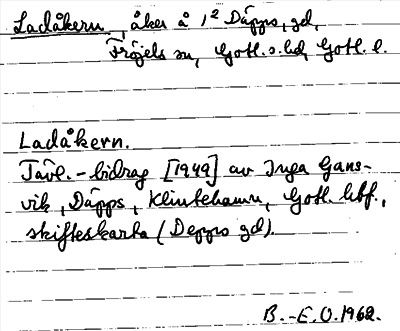 Ladåkern, åker å 1² Däpps, gd,
Fröjels sn, Gotl. s. hd, Gotl. l.
Ladåkern.
Tävl.-bidrag [1949] av Inga Gans-
vik, Däpps, Klintehamn, Gotl. hbf.,
skifteskarta (Depps gd).
B.-E.O. 1962.